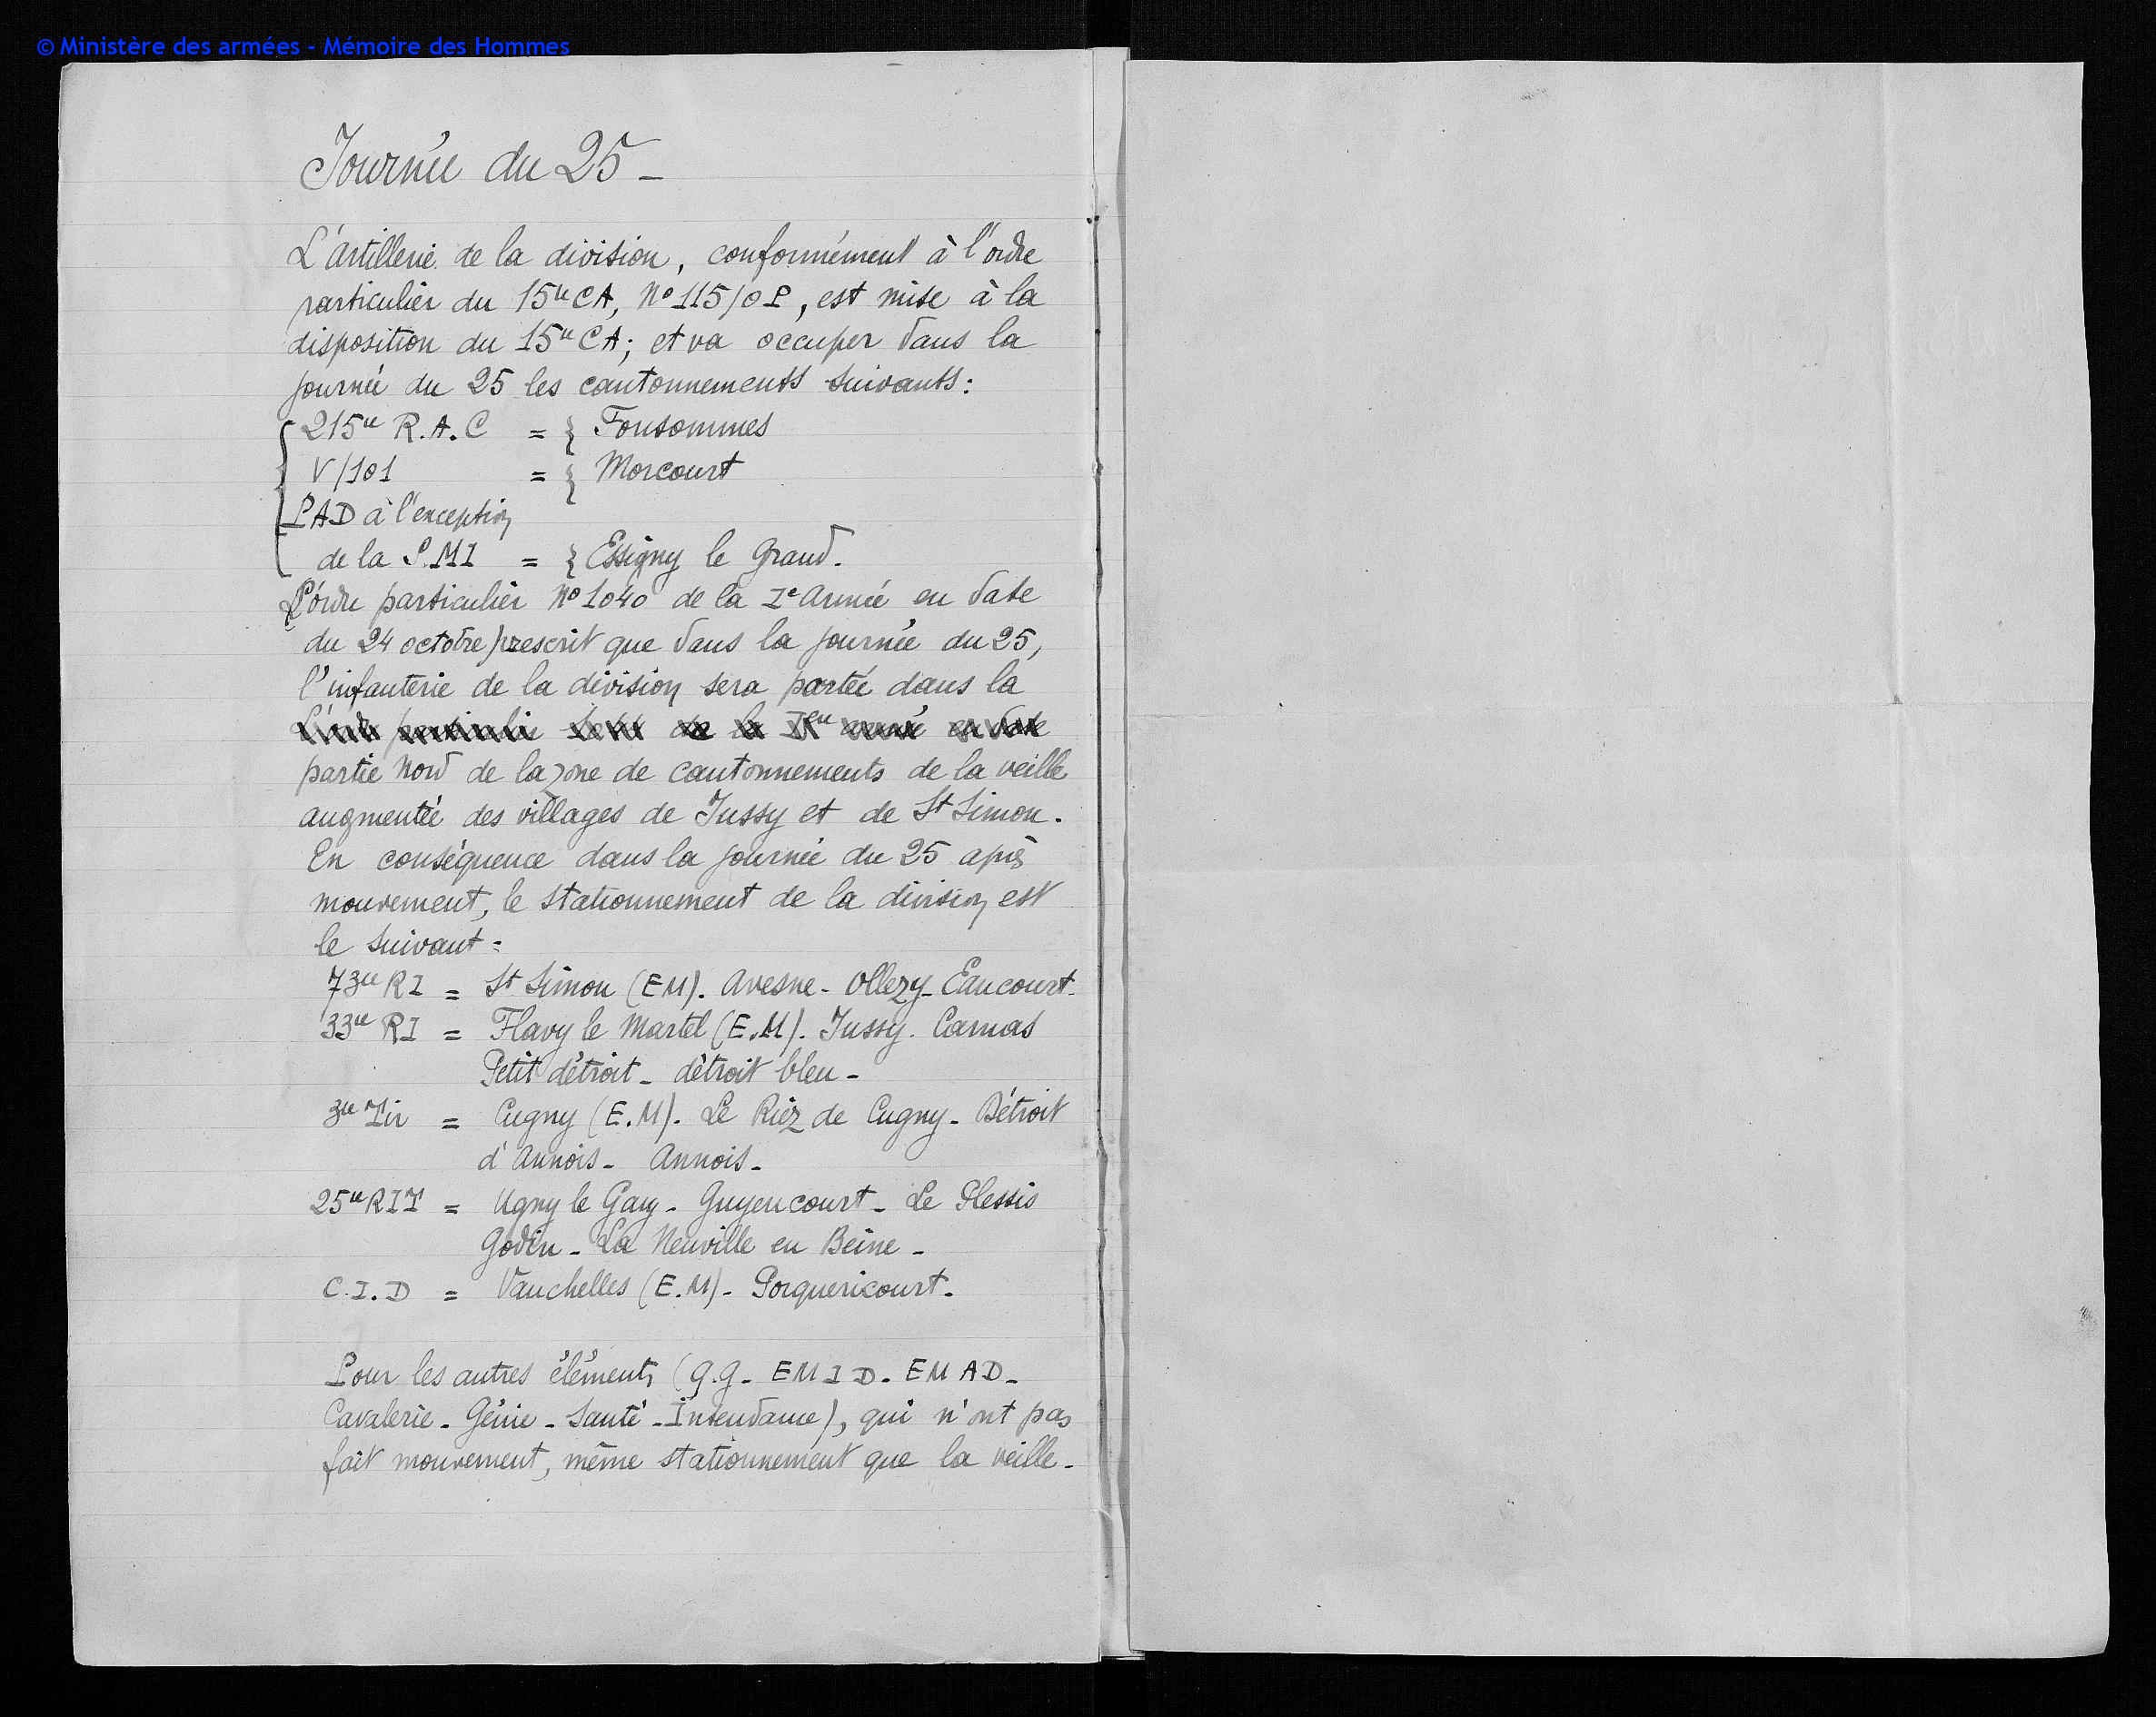 © Ministère des armées - Mémoire des Hommes
Journée du 25 -
L'artillerie de la division, conformément à l'ordre
particulier du 15e CA, No 115/OP, est mise à la
disposition du 15e CA; et va occuper dans la
journée du 25 les cantonnements suivants:
215e R.A.C = { Fonsommes
V/101 = { Morcourt
PAD à l'exception
de la S.MI = { Essigny le Grand.
L'ordre particulier No 1040 de la Ie Armée en date
du 24 octobre prescrit que dans la journée du 25,
l'infanterie de la division sera portée dans la
partie Nord de la zone de cantonnements de la veille
augmentée des villages de Jussy et de St Simon.
En conséquence dans la journée du 25 après
mouvement, le stationnement de la division est
le suivant:
73e RI = St Simon (EM). Avesne - Ollezy - Eaucourt.
33e RI = Flavy le Martel (E.M). Jussy. Camas
Petit détroit - détroit bleu -
3e Tir = Cugny (E.M). Le Riez de Cugny - Détroit
d'Annois - Annois -
25e RIT = Ugny le Gay - Guyencourt - Le Plessis
Godin - La Neuville en Beine -
C.I.D = Vauchelles (E.M) - Porquericourt.
Pour les autres éléments (Q.G - EM I D. EM AD -
Cavalerie - Génie - Santé - Intendance), qui n'ont pas
fait mouvement, même stationnement que la veille -